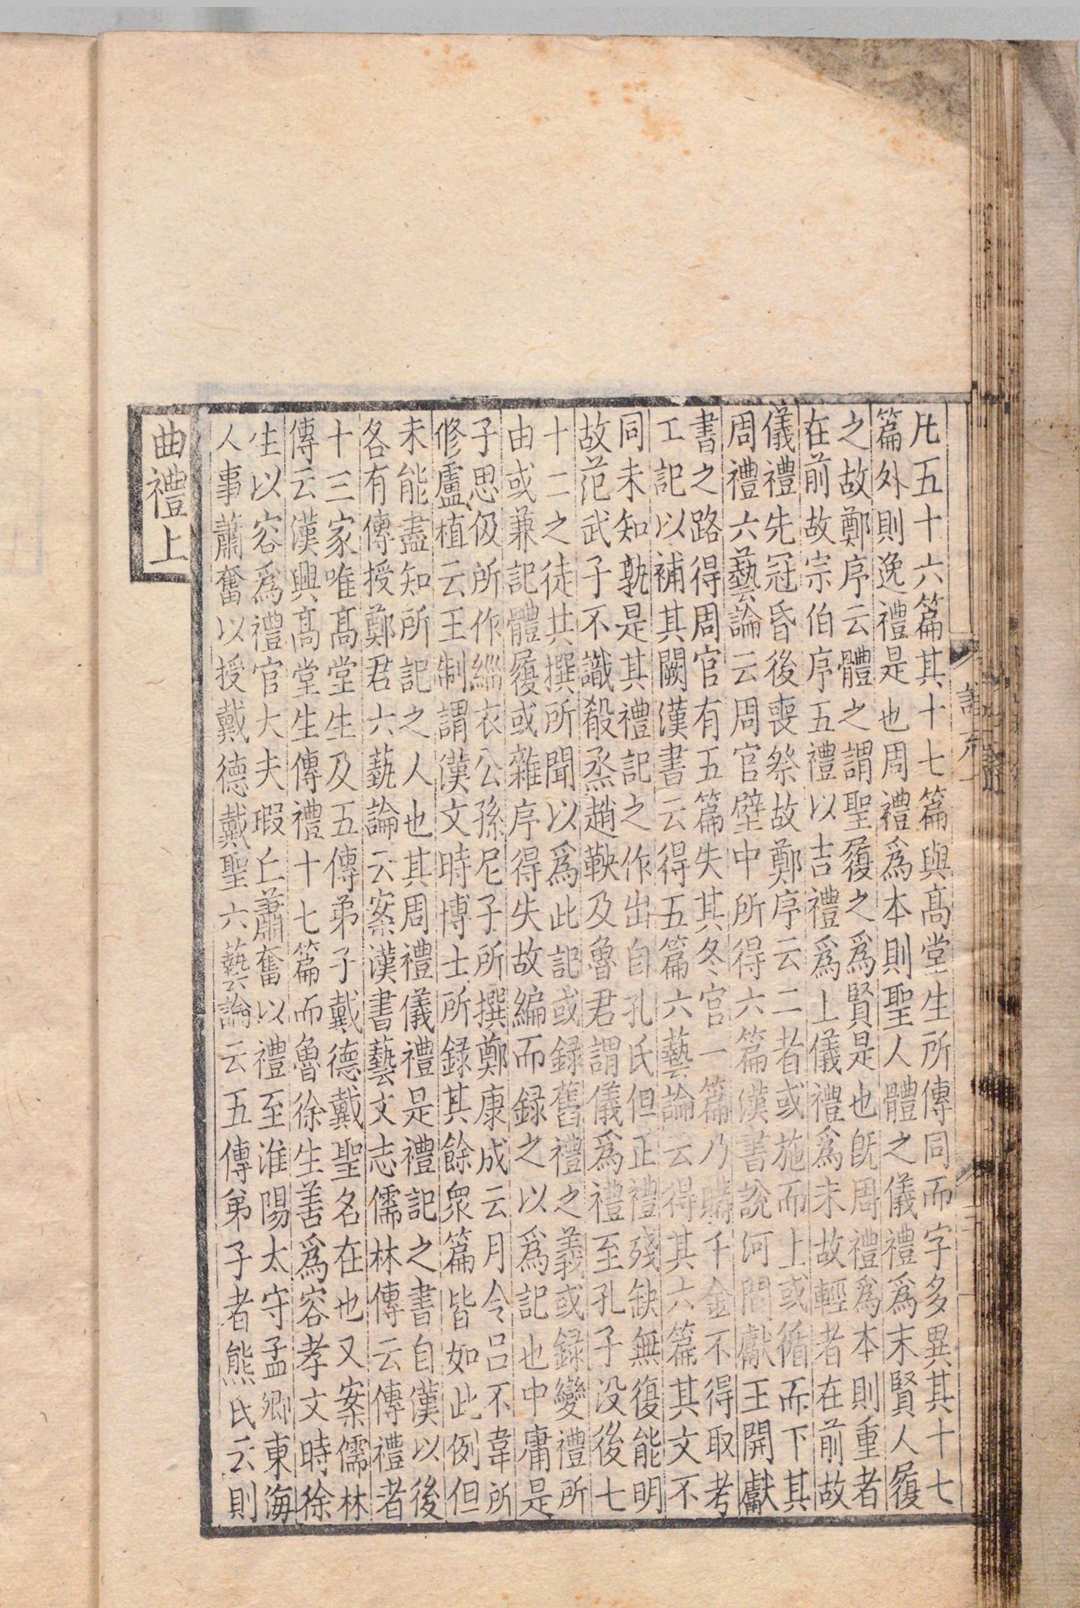 凡五十六篇其十七篇與髙堂生所傳同而字多異其十七
篇外則逸禮是也周禮爲本則聖人體之儀禮爲末賢人履
之故鄭序云體之謂聖履之爲賢是也旣周禮爲本則重者
在前故宗伯序五禮以吉禮爲上儀禮爲末故輕者在前故
儀禮先冠昏後喪祭故鄭序云二者或施而上或循而下其
周禮六藝論云周官壁中所得六篇漢書說河間獻王開獻
書之路得周官有五篇失其冬官一篇乃購千金不得取考
工記以補其闕漢書云得五篇六藝論云得其六篇其文不
同未知孰是其禮記之作出自孔氏但正禮殘缺無復能明
故范武子不識殽烝趙鞅及魯君謂儀爲禮至孔子没後七
十二之徒共撰所聞以爲此記或録舊禮之義或録變禮所
由或兼記體履或雜序得失故編而録之以爲記也中庸是
子思伋所作緇衣公孫尼子所撰鄭康成云月令吕不韋所
修盧植云王制謂漢文時博士所録其餘衆篇皆如此例但
未能盡知所記之人也其周禮儀禮是禮記之書自漢以後
各有傳授鄭君六藝論云案漢書藝文志儒林傳云傳禮者
十三家唯髙堂生及五傳弟子戴德戴聖名在也又案儒林
傳云漢興髙堂生傳禮十七篇而魯徐生善爲容孝文時徐
生以容爲禮官大夫瑕丘蕭奮以禮至淮陽太守孟卿東海
人事蕭奮以授戴德戴聖六藝論云五傳弟子者熊氏云則
曲禮上